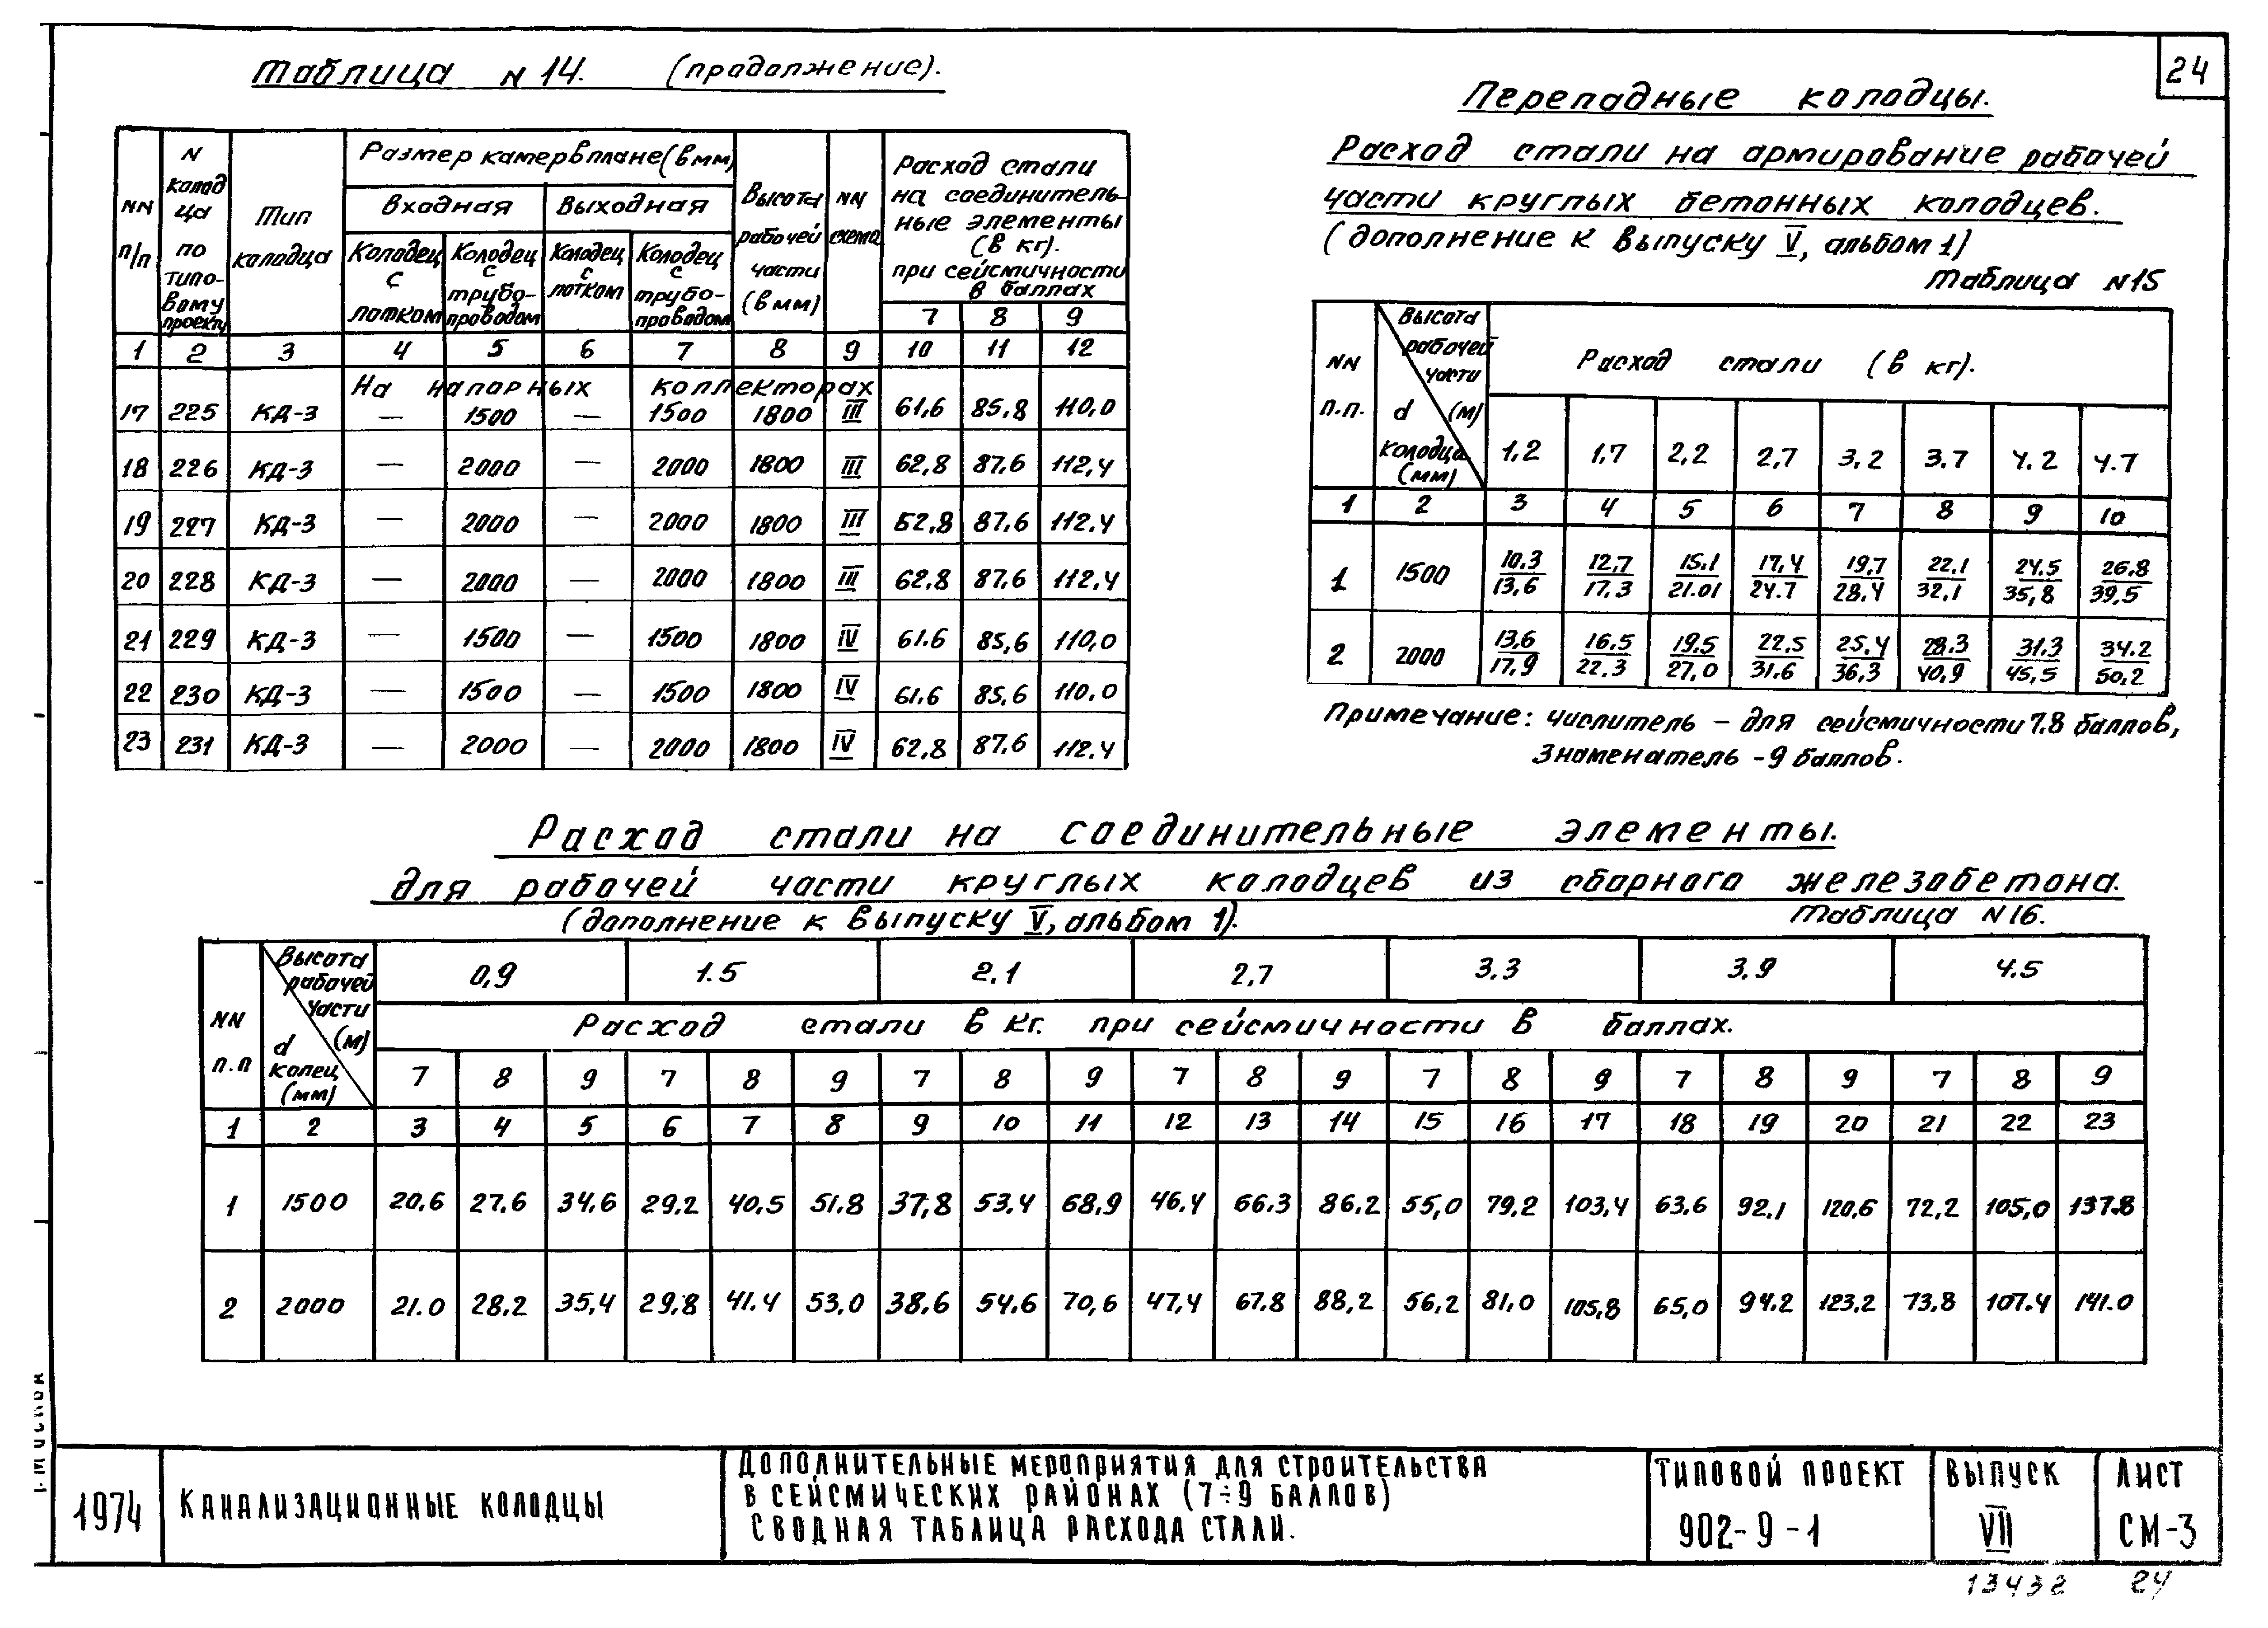 24
Таблица N 14. (продолжение).
NN п/п
N колодца по типовому проекту
Тип колодца
Размер камер в плане (в мм)
Входная
Выходная
Колодец с лотком
Колодец с трубопроводом
Колодец с лотком
Колодец с трубопроводом
Высота рабочей части (в мм)
NN схема
Расход стали на соединительные элементы (в кг). при сейсмичности в баллах
7 8 9
1 2 3 4 5 6 7 8 9 10 11 12
На напорных коллекторах
17 225 КД-3 — 1500 — 1500 1800 III 61,6 85,8 110,0
18 226 КД-3 — 2000 — 2000 1800 III 62,8 87,6 112,4
19 227 КД-3 — 2000 — 2000 1800 III 62,8 87,6 112.4
20 228 КД-3 — 2000 — 2000 1800 III 62,8 87,6 112,4
21 229 КД-3 — 1500 — 1500 1800 IV 61.6 85,6 110,0
22 230 КД-3 — 1500 — 1500 1800 IV 61.6 85.6 110.0
23 231 КД-3 — 2000 — 2000 1800 IV 62,8 87,6 112.4
Перепадные колодцы.
Расход стали на армирование рабочей
части круглых бетонных колодцев.
(дополнение к выпуску V, альбом 1)
Таблица N15
NN п.п.
Высота рабочей части (м)
d колодца (мм)
Расход стали (в кг).
1,2 1,7 2,2 2,7 3,2 3.7 4.2 4.7
1 2 3 4 5 6 7 8 9 10
1 1500 10.3/13,6 12,7/17.3 15.1/21.01 17,4/24.7 19,7/28.4 22.1/32,1 24.5/35,8 26,8/39,5
2 2000 13,6/17,9 16,5/22.3 19.5/27,0 22,5/31.6 25.4/36,3 28.3/40,9 31.3/45,5 34.2/50.2
Примечание: числитель – для сейсмичности 7.8 баллов,
знаменатель - 9 баллов.
Расход стали на соединительные элементы.
для рабочей части круглых колодцев из сборного железобетона.
(дополнение к выпуску V, альбом 1).
Таблица N16.
NN п.п
Высота рабочей части (м)
d колец (мм)
0,9 1.5 2.1 2,7 3.3 3.9 4.5
Расход стали в кг. при сейсмичности в баллах.
7 8 9 7 8 9 7 8 9 7 8 9 7 8 9 7 8 9 7 8 9
1 2 3 4 5 6 7 8 9 10 11 12 13 14 15 16 17 18 19 20 21 22 23
1 1500 20,6 27.6 34.6 29.2 40,5 51.8 37,8 53,4 68,9 46.4 66.3 86.2 55,0 79,2 103,4 63,6 92.1 120,6 72,2 105,0 137.8
2 2000 21.0 28.2 35,4 29,8 41.4 53,0 38,6 54.6 70,6 47,4 67.8 88,2 56,2 81,0 105,8 65,0 94.2 123,2 73,8 107.4 141.0
1974
Канализационные колодцы
Дополнительные мероприятия для строительства
в сейсмических районах (7÷9 баллов)
Сводная таблица расхода стали.
Типовой проект
902-9-1
Выпуск
VII
Лист
СМ-3
13432 24